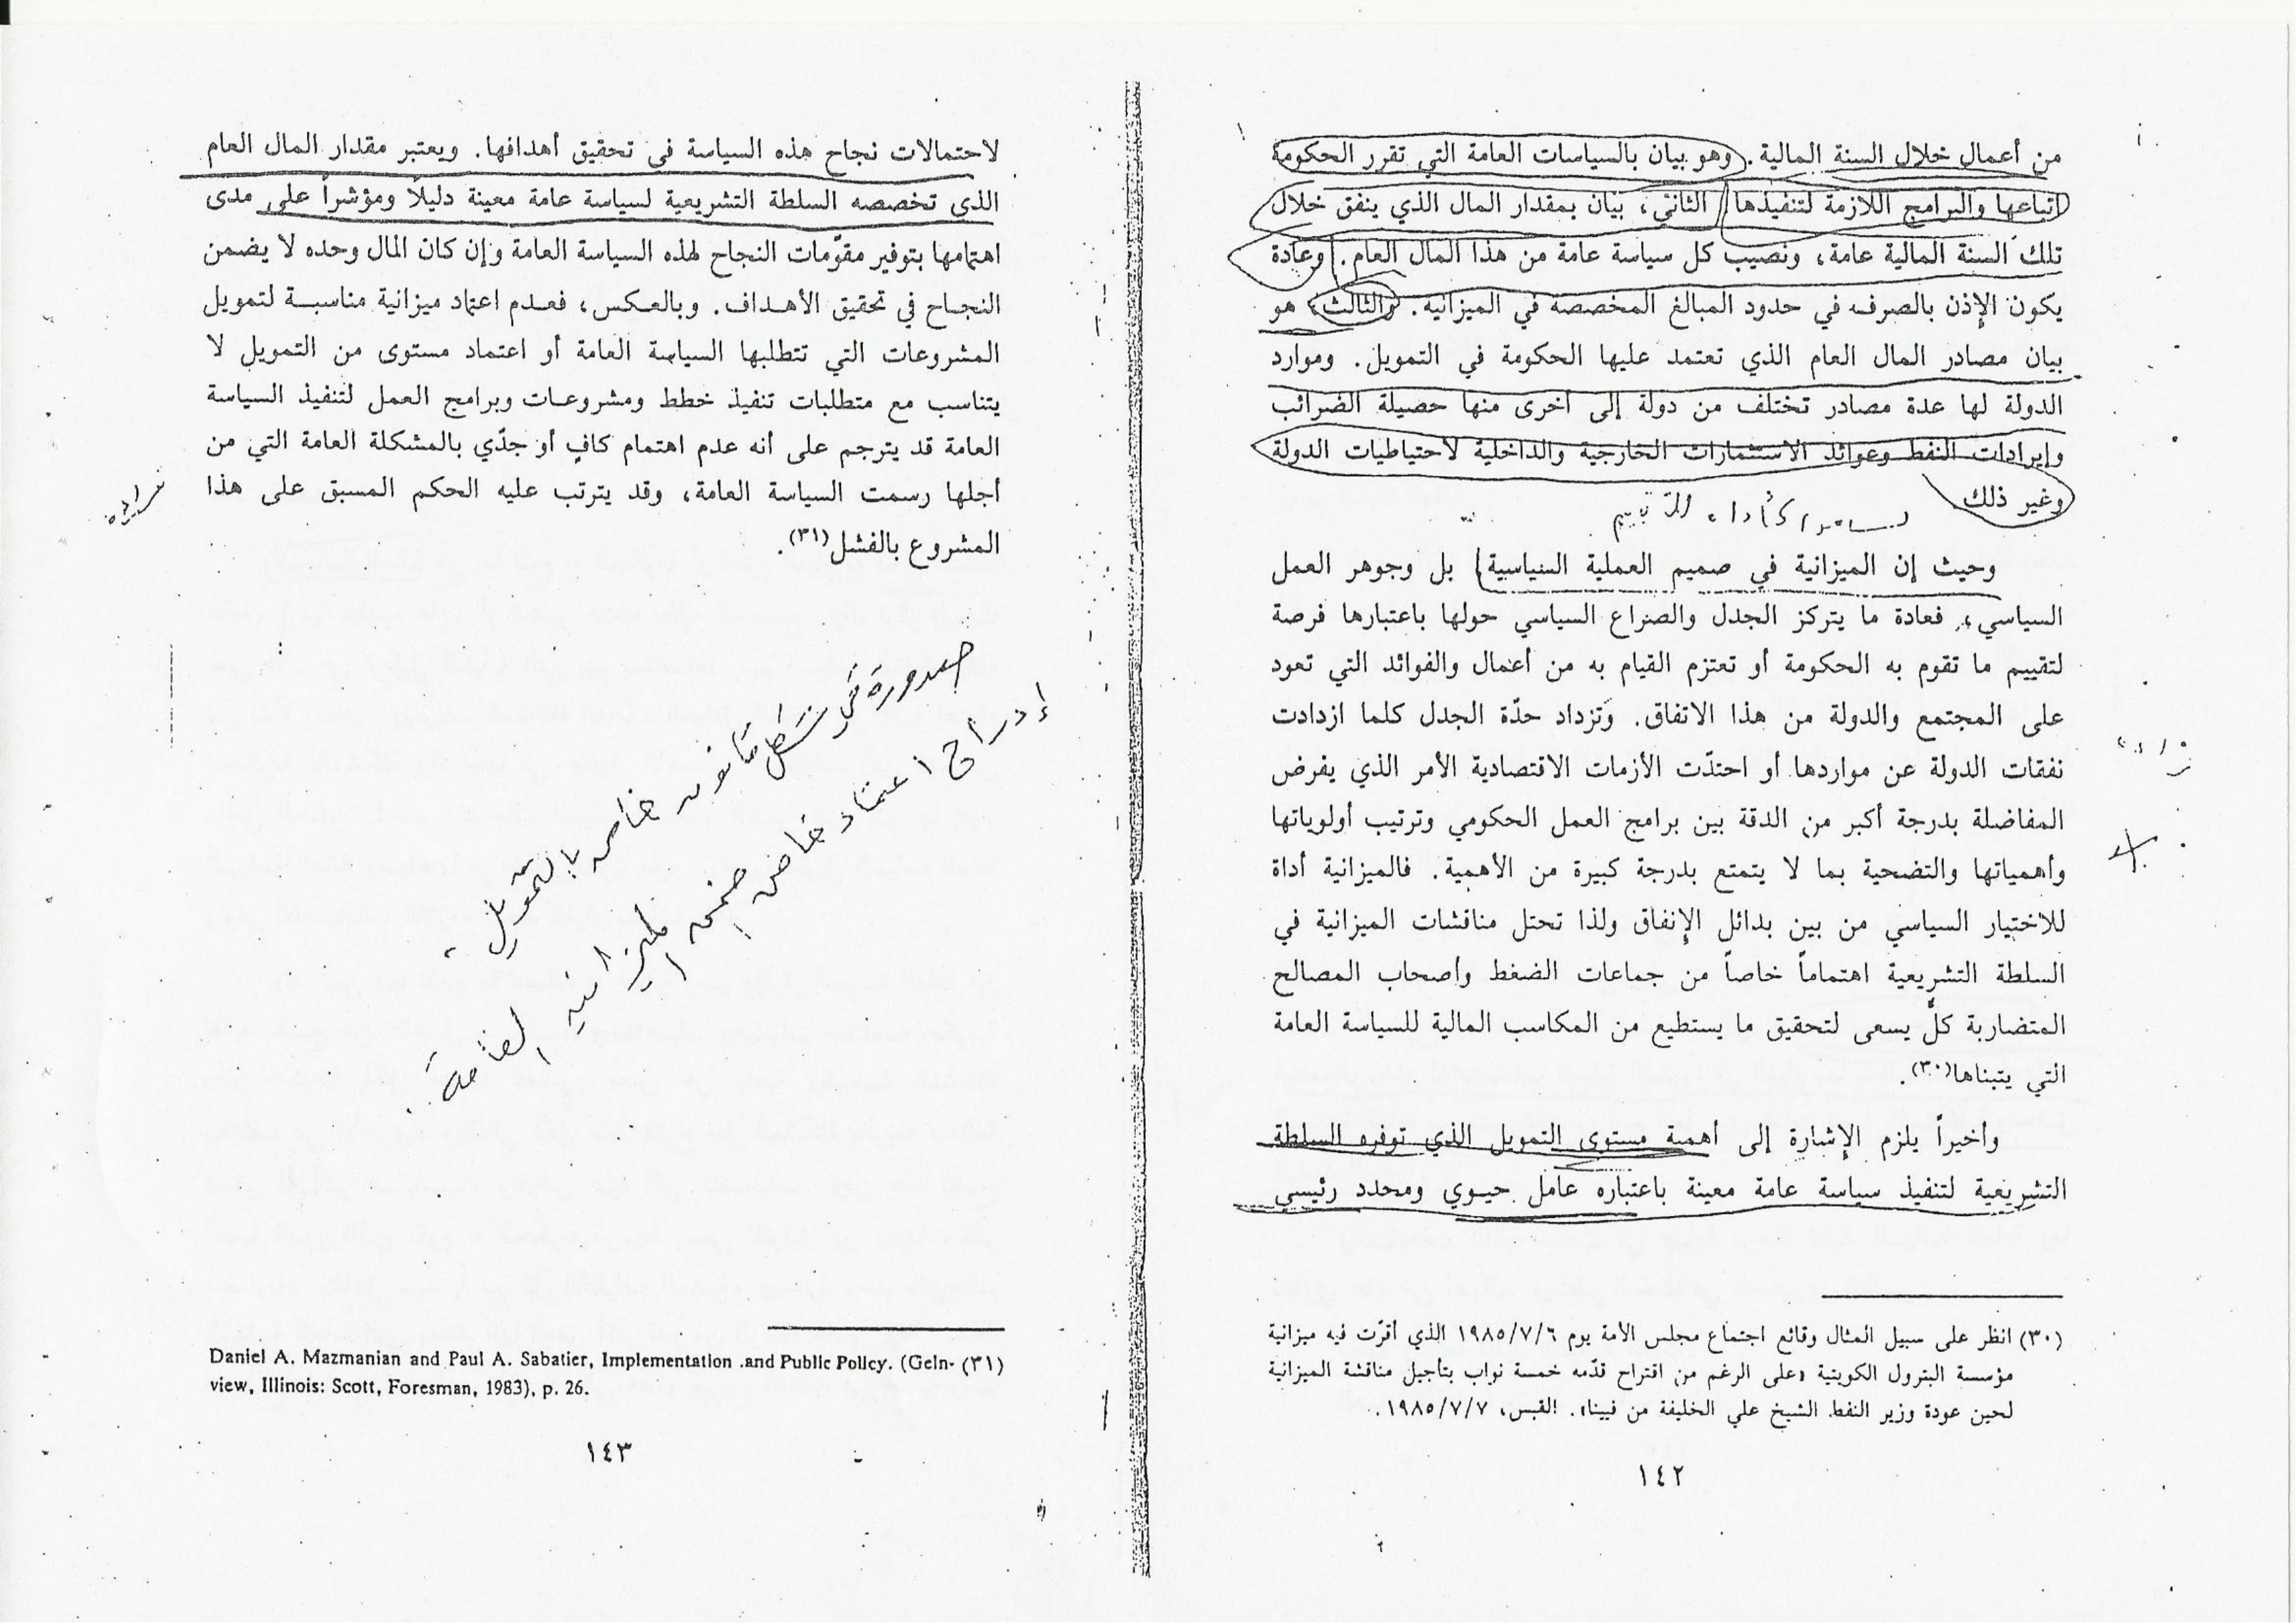 من أعمال خلال السنة المالية. وهو بيان بالسياسات العامة التي تقرر الحكومة
اتباعها والبرامج اللازمة لتنفيذها الثاني، بيان بمقدار المال الذي ينفق خلال
تلك السنة المالية عامة، ونصيب كل سياسة عامة من هذا المال العام. وعادة
يكون الإذن بالصرف في حدود المبالغ المخصصة في الميزانية. والثالث، هو
بيان مصادر المال العام الذي تعتمد عليها الحكومة في التمويل. وموارد
الدولة لها عدة مصادر تختلف من دولة إلى أخرى منها حصيلة الضرائب
وإيرادات النفط وعوائد الاستثمارات الخارجية والداخلية لاحتياطيات الدولة
وغير ذلك.
كأداة للتقييم
وحيث إن الميزانية في صميم العملية السياسية، بل وجوهر العمل
السياسي، فعادة ما يتركز الجدل والصراع السياسي حولها باعتبارها فرصة
لتقييم ما تقوم به الحكومة أو تعتزم القيام به من أعمال والفوائد التي تعود
على المجتمع والدولة من هذا الاتفاق. وتزداد حدّة الجدل كلما ازدادت
نفقات الدولة عن مواردها أو احتدّت الأزمات الاقتصادية الأمر الذي يفرض
المفاضلة بدرجة أكبر من الدقة بين برامج العمل الحكومي وترتيب أولوياتها
وأهمياتها والتضحية بما لا يتمتع بدرجة كبيرة من الأهمية. فالميزانية أداة
للاختيار السياسي من بين بدائل الإنفاق ولذا تحتل مناقشات الميزانية في
السلطة التشريعية اهتماماً خاصاً من جماعات الضغط وأصحاب المصالح
المتضاربة كلٌّ يسعى لتحقيق ما يستطيع من المكاسب المالية للسياسة العامة
التي يتبناها(٣٠).
وأخيراً يلزم الإشارة إلى أهمية مستوى التمويل الذي توفره السلطة
التشريعية لتنفيذ سياسة عامة معينة باعتباره عامل حيوي ومحدد رئيسي
(٣٠) انظر على سبيل المثال وقائع اجتماع مجلس الأمة يوم ١٩٨٥/٧/٦ الذي أقرّت فيه ميزانية
مؤسسة البترول الكويتية «على الرغم من اقتراح قدّمه خمسة نواب بتأجيل مناقشة الميزانية
لحين عودة وزير النفط الشيخ علي الخليفة من فيينا». القبس، ١٩٨٥/٧/٧.
١٤٢
لاحتمالات نجاح هذه السياسة في تحقيق أهدافها. ويعتبر مقدار المال العام
الذي تخصصه السلطة التشريعية لسياسة عامة معينة دليلاً ومؤشراً على مدى
اهتمامها بتوفير مقوّمات النجاح لهذه السياسة العامة وإن كان المال وحده لا يضمن
النجاح في تحقيق الأهداف. وبالعكس، فعدم اعتماد ميزانية مناسبة لتمويل
المشروعات التي تتطلبها السياسة العامة أو اعتماد مستوى من التمويل لا
يتناسب مع متطلبات تنفيذ خطط ومشروعات وبرامج العمل لتنفيذ السياسة
العامة قد يترجم على أنه عدم اهتمام كافٍ أو جدّي بالمشكلة العامة التي من
أجلها رسمت السياسة العامة، وقد يترتب عليه الحكم المسبق على هذا
المشروع بالفشل(٣١).
صدوره في شكل قانون خاص بالتمويل،
إدراج اعتماد خاص ضمن الميزانية العامة.
Daniel A. Mazmanian and Paul A. Sabatier, Implementation .and Public Policy. (Geln- (٣١)
view, Illinois: Scott, Foresman, 1983), p. 26.
١٤٣